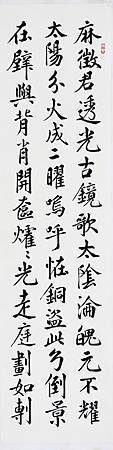 麻徵君透光古鏡歌太陰淪魄元不耀
太陽分火成二曜嗚呼怪銅盜此丂倒景
在壁與背肖開奩燿〻光走庭劃如